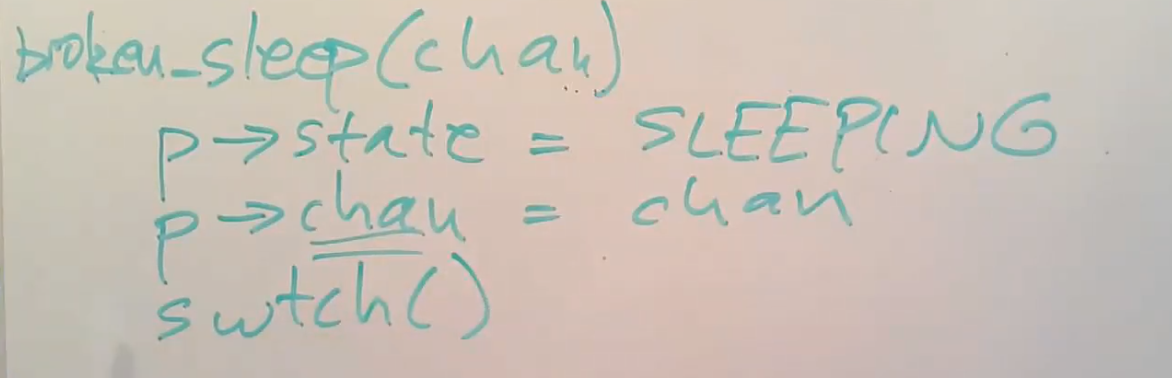 broken_sleep(chan)
p→state = SLEEPING
p→chan = chan
swtch()